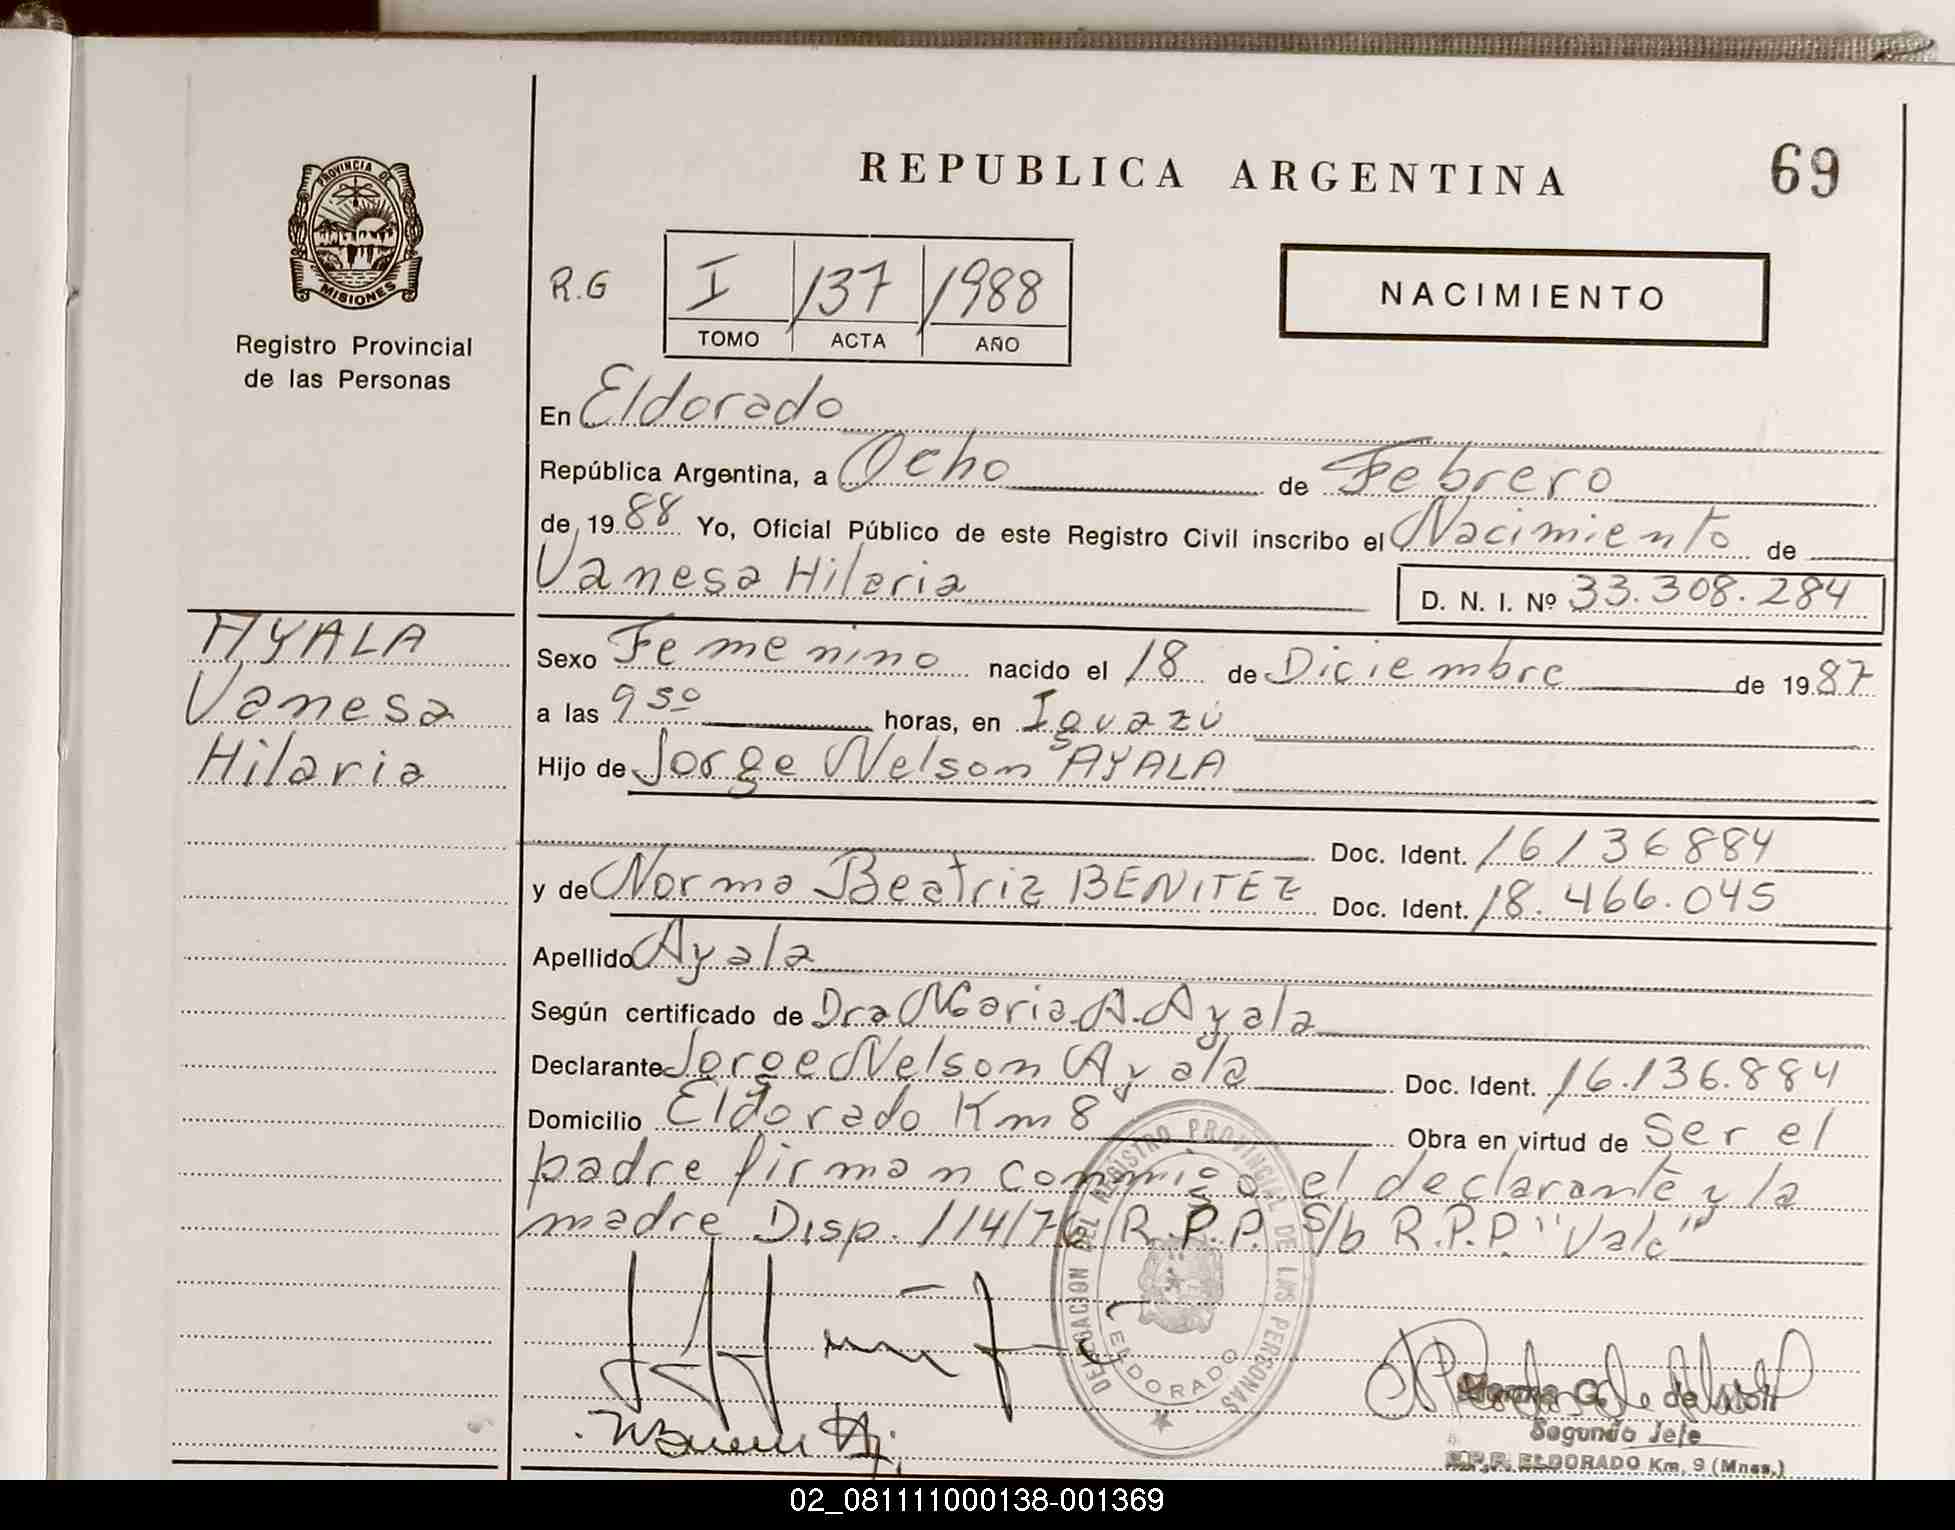 REPUBLICA ARGENTINA
69
PROVINCIA DE
MISIONES
Registro Provincial
de las Personas
R.G
I 137 1988
TOMO ACTA AÑO
NACIMIENTO
En Eldorado
República Argentina, a Ocho de Febrero
de 1988 Yo, Oficial Público de este Registro Civil inscribo el Nacimiento de
Vanesa Hilaria
D. N. I. Nº 33.308.284
AYALA
Vanesa
Hilaria
Sexo Femenino nacido el 18 de Diciembre de 1987
a las 9 30 horas, en Iguazú
Hijo de Jorge Nelson AYALA
Doc. Ident. 16136884
y de Norma Beatriz BENITEZ Doc. Ident. 18.466.045
Apellido Ayala
Según certificado de Dra Maria A. Ayala
Declarante Jorge Nelson Ayala Doc. Ident. 16.136.884
Domicilio Eldorado Km 8 Obra en virtud de Ser el
padre firman conmigo el declarante y la
madre Disp. 114/76 R.P.P. S/b R.P.P. "Vale"
DELEGACION DEL REGISTRO PROVINCIAL DE LAS PERSONAS
ELDORADO
G. de Moll
Segundo Jefe
R.P.P. ELDORADO Km. 9 (Mnes.)
02_081111000138-001369